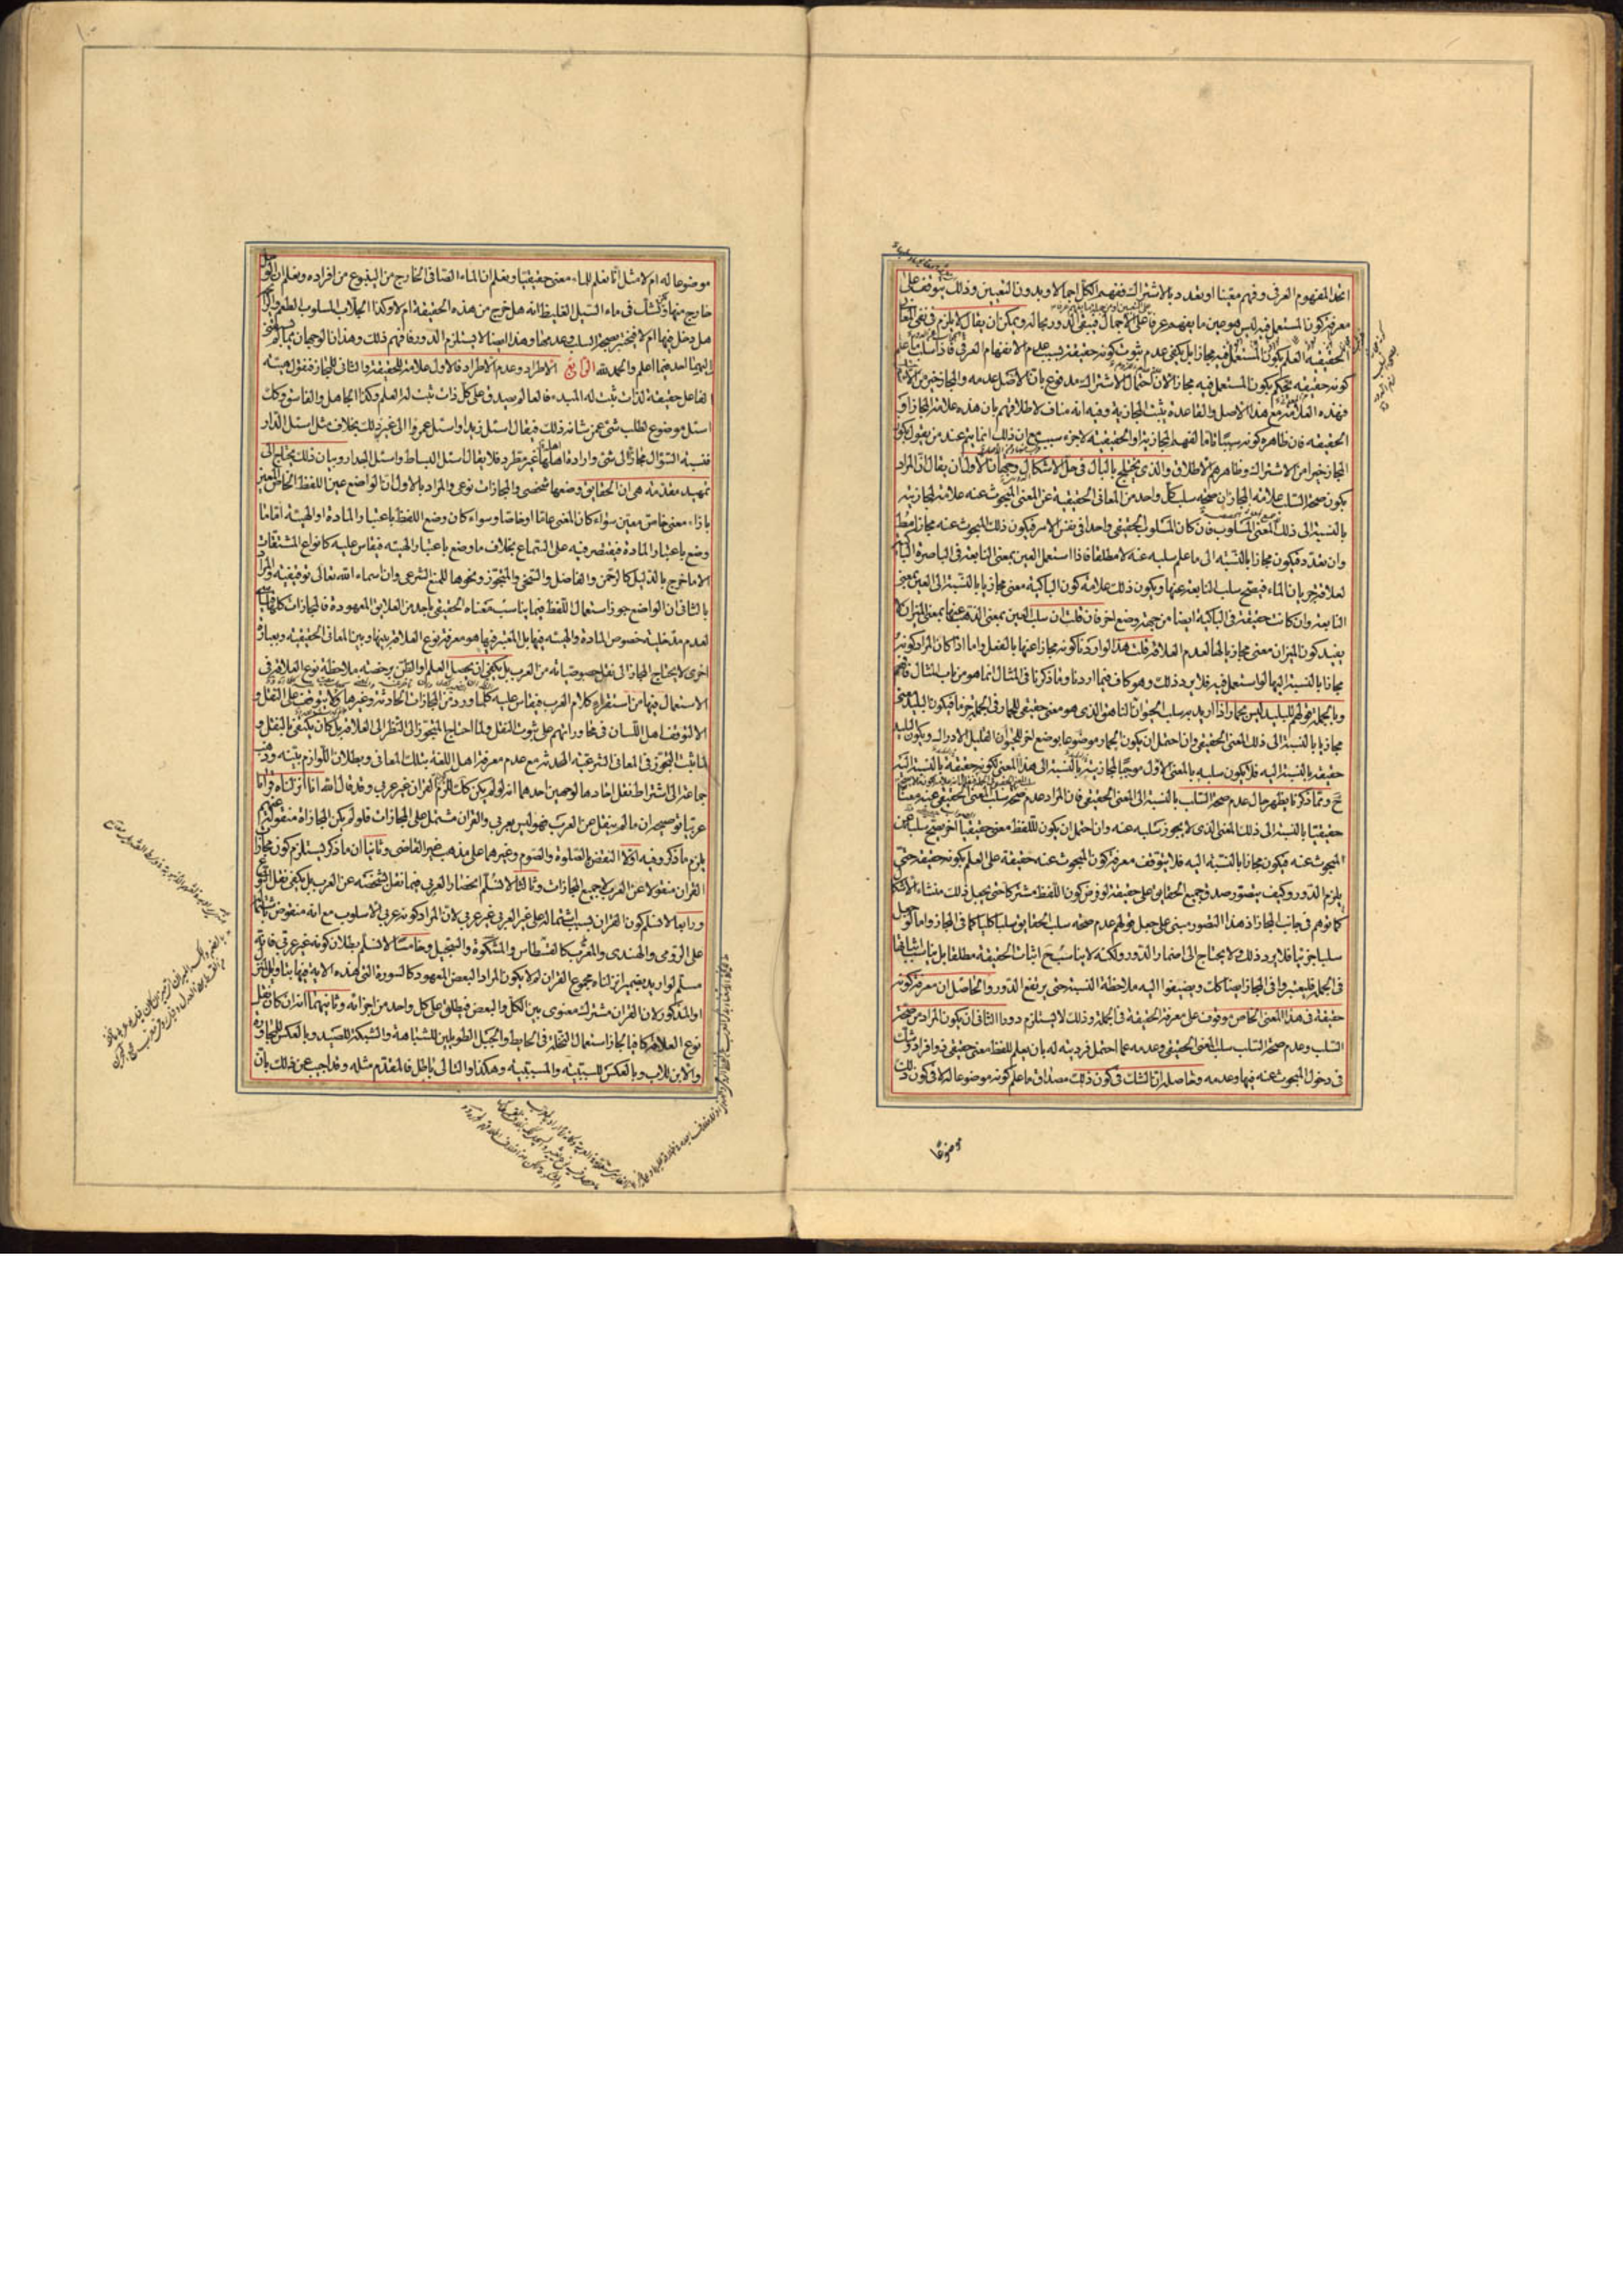 اتحد المفهوم العرفي وفهم معينا او تعدد بالاشتراك ففهم الكل اجمالا وبدون التعيين وذلك يتوقف على
معرفة كون المستعمل فيه ليس هو عين ما يفهم عرفا على الاجمال فيبقى الدور بحاله ويمكن ان يقال لا يلزم في نفي المعانى
الحقيقية العلم بكون المستعمل فيه مجازا بل يكفي عدم ثبوت كونه حقيقة بسبب عدم الانفهام العرفي فاذا سلب ما علم
كونه حقيقة يحكم بكون المستعمل فيه مجازا لان احتمال الاشتراك مدفوع بان الاصل عدمه والمجاز خير من الاشتراك
فهذه العلامة مع هذا الاصل والقاعدة يثبت المجازية وفيه انه مناف لاطلاقهم بان هذه علامة المجاز او
الحقيقة فان ظاهره كونه سببا تاما لفهم المجازية او الحقيقة لا جزء سبب مع ان ذلك انما يتم عند من يقول بكون
المجاز خيرا من الاشتراك وظاهرهم الاطلاق والذي يختلج بالبال في حل الاشكال وجهان الاول ان يقال ان المراد
بكون صحة السلب علامة المجاز ان صحة سلب كل واحد من المعاني الحقيقية عن المعنى المبحوث عنه علامة لمجازيته
بالنسبة الى ذلك المعنى المسلوب فان كان المسلوب الحقيقي واحدا في نفس الامر فيكون ذلك المبحوث عنه مجازا مطلقا
وان تعدد فيكون مجازا بالنسبة الى ما علم سلبه عنه لا مطلقا فاذا استعمل العين بمعنى النابعة في الباصرة الباكية
لعلاقة جريان الماء فيصح سلب النابعة عنها ويكون ذلك علامة كون الباكية معنى مجازيا بالنسبة الى العين بمعنى
النابعة وان كانت حقيقة في الباكية ايضا من جهة وضع اخر فان قلت ان سلب العين بمعنى الذهب عنها بمعنى الميزان لا
يفيد كون الميزان معنى مجازيا لها لعدم العلاقة قلت هذا لو اردنا كونه مجازا عنها بالفعل واما اذا كان المراد كونه
مجازا بالنسبة اليها لو استعمل فيه فلا يرد ذلك وهو كاف فيما اردنا وما ذكرنا في المثال انما هو من باب المثال فافهم
وبالجملة قولهم للبليد ليس بحمار اذا اريد به سلب الحيوان الناهق الذي هو معنى حقيقي للحمار في الجملة جزما فيكون البليد معنى
مجازيا بالنسبة الى ذلك المعنى الحقيقي وان احتمل ان يكون الحمار موضوعا بوضع اخر للحيوان القليل الادراك ويكون البليد
حقيقة بالنسبة اليه فلا يكون سلبه بالمعنى الاول موجبا لمجازيته بالنسبة الى هذا المعنى لكونه حقيقة بالنسبة اليه
ح ومما ذكرنا يظهر حال عدم صحة السلب بالنسبة الى المعنى الحقيقي فان المراد عدم صحة سلب المعنى الحقيقي عنه معنا
حقيقيا بالنسبة الى ذلك المعنى الذي لا يجوز سلبه عنه وان احتمل ان يكون للفظ معنى حقيقيا آخر يصح سلبه عن
المبحوث عنه فيكون مجازا بالنسبة اليه فلا يتوقف معرفة كون المبحوث عنه حقيقة على العلم بكونه حقيقة حتى
يلزم الدور وكيف يتصور صدق جميع الحقايق على حقيقة لو فرض كون اللفظ مشتركا حتى يجعل ذلك منشاء الاشكال
كما توهم في جانب المجاز اذ هذا التصور مبنى على جعل قولهم عدم صحة سلب الحقايق سلبا كليا كما في المجاز واما لو جعل
سلبا جزئيا فلا يرد ذلك ولا يحتاج الى اضمار الدور ولكنه لا يناسب ح اثبات الحقيقة مطلقا بل يناسب اثباتها
في الجملة فليعتبروا في المجاز ايضا كك ويضيفوا اليه ملاحظة النسبة حتى يرتفع الدور والحاصل ان معرفة كونه
حقيقة في هذا المعنى الخاص موقوف على معرفة الحقيقة في الجملة وذلك لا يستلزم دورا الثاني ان يكون المراد من صحة
السلب وعدم صحة السلب سلب المعنى الحقيقي وعدمه عما احتمل فرديته له بان يعلم للفظ معنى حقيقي ذو افراد وشك
في دخول المبحوث عنه فيها وعدمه وحاصله ان الشك في كون ذلك مصداق ما علم كونه موضوعا له لا في كون ذلك
موضوعا
موضوعا له ام لا مثل انا نعلم للماء معنى حقيقيا ونعلم ان الماء الصافي الخارج من الينبوع من افراده ونعلم ان الوحل
خارج منها ونشك في ماء السيل الغليظ انه هل خرج من هذه الحقيقة ام لا وكذا الجلاب المسلوب الطعم والرايحة
هل دخل فيها ام لا فيختبر بصحة السلب وعدمها وهذا ايضا لا يستلزم الدور فافهم ذلك وهذان الوجهان مما لم يسبقني
اليهما احد فيما اعلم والحمد لله الرابع الاطراد وعدم الاطراد فالاول علامة للحقيقة والثاني للمجاز فنقول هيئة
الفاعل حقيقة لذات ثبت له المبدء فالعالم يصدق على كل ذات ثبت له العلم وكذا الجاهل والفاسق وكك
اسئل موضوع لطلب شئ عمن شانه ذلك فيقال اسئل زيدا واسئل عمروا الى غير ذلك بخلاف مثل اسئل الدار
فنسبة السؤال مجازا الى شئ وارادة اهله غير مطرد فلا يقال اسئل البساط واسئل الجدار وبيان ذلك يحتاج الى
تمهيد مقدمة هي ان الحقايق وضعها شخصي والمجازات نوعي والمراد بالاول ان الواضع عين اللفظ الخاص المعين
بازاء معنى خاص معين سواء كان المعنى عاما او خاصا وسواء كان وضع اللفظ باعتبار المادة او الهيئة اما ما
وضع باعتبار المادة فيقتصر فيه على السماع بخلاف ما وضع باعتبار الهيئة فيقاس عليه كانواع المشتقات
الا ما خرج بالدليل كالرحمن والفاضل والسخي والمتجوز ونحوها للمنع الشرعي وان اسماء الله تعالى توقيفية والمراد
بالثاني ان الواضع جوز استعمال اللفظ فيما يناسب معناه الحقيقي باحد من العلايق المعهودة فالمجازات كلها قياسية
لعدم مدخلية خصوص المادة والهيئة فيها بل المعتبر فيها هو معرفة نوع العلاقة بينها وبين المعاني الحقيقية وبعبارة
اخرى لا يحتاج المجاز الى نقل خصوصياته من العرب بل يكفي ان يحصل العلم او الظن برخصة ملاحظة نوع العلاقة في
الاستعمال فيها من استقراء كلام العرب فيقاس عليه كلما ورد من المجازات الحادثة وغيرها ولا يتوقف على النقل و
الا لتوقف اهل اللسان في محاوراتهم على ثبوت النقل ولما احتاج المتجوز الى النظر الى العلاقة بل كان يكتفي بالنقل و
لما ثبت التجوز في المعاني الشرعية المحدثة مع عدم معرفة اهل اللغة بتلك المعاني وبطلان اللوازم بينة وذهب
جماعة الى اشتراط نقل احادها لوجهين احدهما انه لو لم يكن كك لزم كون القران غير عربي وقد قال الله انا انزلناه قرانا
عربيا توضيحه ان ما لم ينقل عن العرب فهو ليس بعربي والقران مشتمل على المجازات فلو لم يكن المجازاة منقولة عنهم
يلزم ما ذكر وفيه اولا النقض بالصلوة والصوم وغيرهما على مذهب غير القاضي وثانيا ان ما ذكر يستلزم كون مجازات
القران منقولا عن العرب لا جميع المجازات وثالثا لا نسلم انحصار العربي فيما نقل بشخصه عن العرب بل يكفي نقل النوع
ورابعا لا نسلم كون القران بسبب اشتماله على غير العربي غير عربي لان المراد كونه عربي الاسلوب مع انه منقوض باشتماله
على الرومي والهندي والمعرب كالقسطاس والمشكوة والسجيل وخامسا لا نسلم بطلان كونه غير عربي فانه
مسلم لو اريد بضمير انزلناه مجموع القران لم لا يكون المراد البعض المعهود كالسورة التي هذه الاية فيها بتاويل المنزل
او المذكور لان القران مشترك معنوي بين الكل والبعض فيطلق على كل واحد من اجزائه وثانيهما انه ان كان نقل
نوع العلاقة كافيا لجاز استعمال النخلة في الحايط والجبل الطويلين للمشابهة والشبكة للصيد وبالعكس للمجاورة
والابن للاب وبالعكس للسببية والمسببية وهكذا والتالي باطل فالمقدم مثله وقد اجيب عن ذلك بان